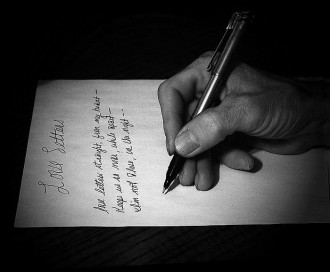 Love Letters
love letters straight from my heart—
Keeps us so near while apart—
I'm not alone, in the night--